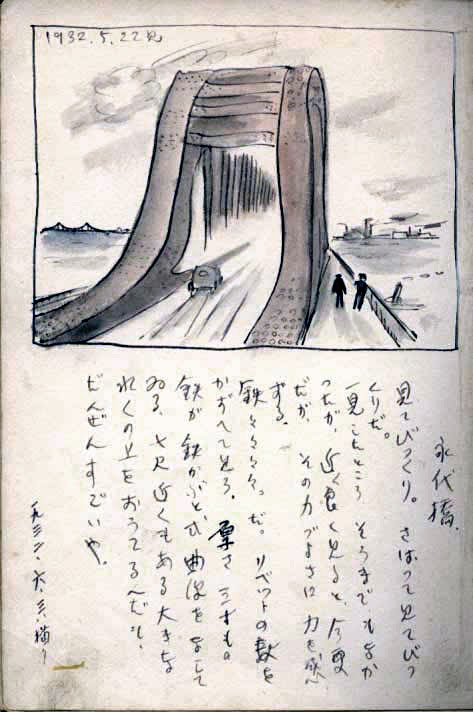 1932.5.22見
永代橋.
見てびっくり。さはって見てびっ
くりだ。
一見したところ そうまでもなか
ったが、近く良く見ると、今更
だが、その力づよさに力を感
ずる。
鉄々々々々。だ。リベットの数を
かぞへて見ろ. 厚さ三寸もの
鉄が 鉄かぶと式曲線をなして
ゐる、七尺近くもある大きな
の上をおうてるんだもの
だんぜんすごいや。
一九三二、六、三、描く